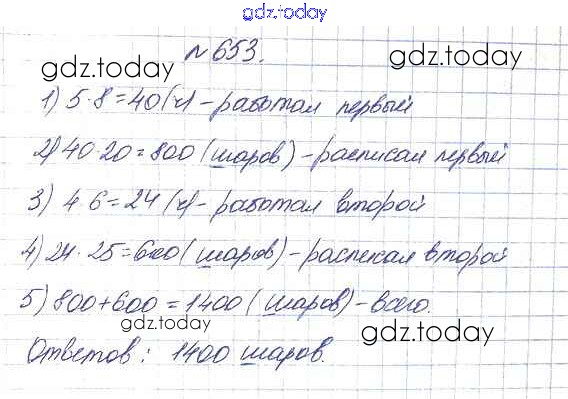 gdz.today
№ 653.
gdz.today gdz.today
1) 5·8=40(ч) - работал первый
2) 40·20=800 (шаров) - расписал первый
3) 4·6=24 (ч) - работал второй
gdz.today gdz.today
4) 24·25=600 (шаров) - расписал второй
5) 800+600=1400 (шаров) - всего.
gdz.today gdz.today
Ответов: 1400 шаров.